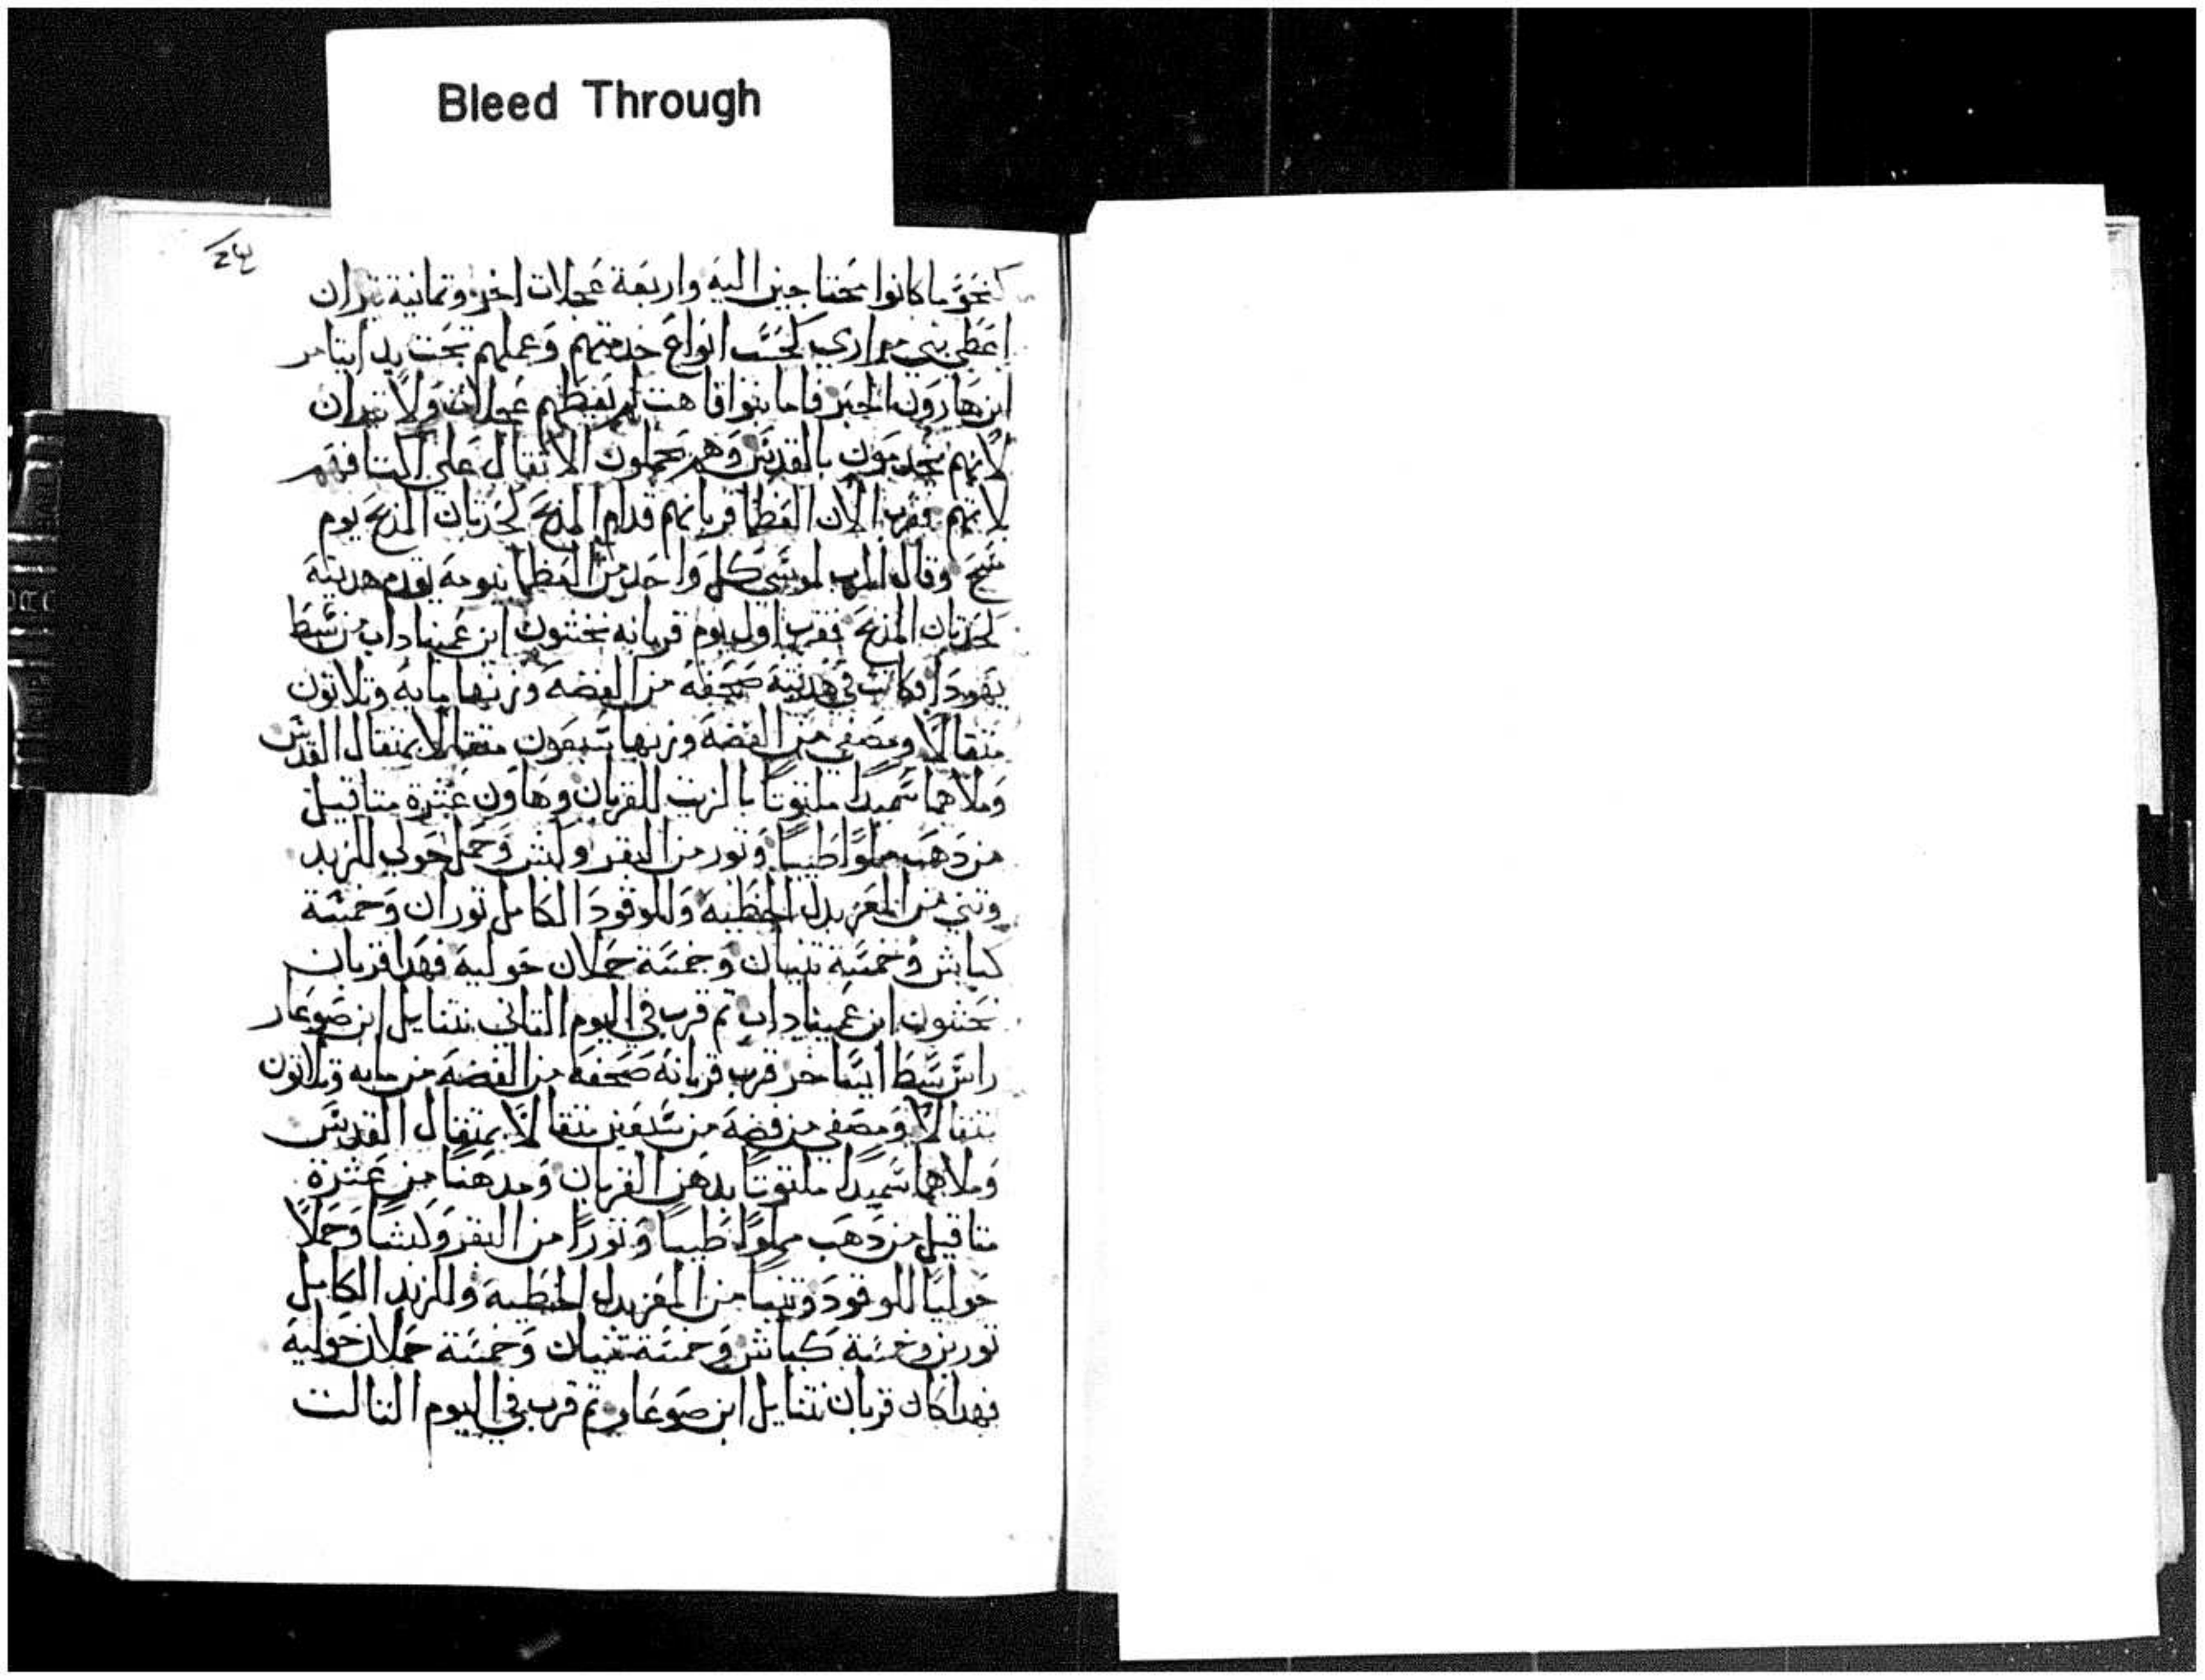 Bleed Through
كنحو ما كانوا محتاجين اليه واربعة عجلات اخر وتمانية تيران
اعطي بني مراري كحسب انواع خدمتهم وعملهم تحت يد ايتامر
ابن هارون الحبر فاما بنوا قاهت لم يعطهم عجلات ولا تيران
لانهم يخدمون بالقدس وهم يحملون الاتقال على اكتافهم
لانهم فقرب الان العظما قربانهم قدام المذبح لحدتان المذبح يوم
مسح وقال الرب لموسى كل واحد من العظما بيومه يقدم هديته
لحدتان المذبح فقرب اول يوم قربانه نحشون ابن عميناداب من سبط
يهودا وكانت في هديته صحفه من الفضه وزنها مايه وتلاتون
متقالاً ومصفى من الفضه وزنها سبعون متقالا بمتقال القدس
وملاهما سميداً ملتوتاً بالزيت للقربان وهاون عشرة متاقيل
من دهب مملواً طيباً وتور من البقر وكبش وحمل حولي للزبد
وتني من المعز بدل الخطيه وللوقود الكامل توران وخمسة
كباش وخمسة تنيان وخمسة حملان حوليه فهدا قربان
نحشون ابن عميناداب تم قرب في اليوم التاني نتنايل ابن صوعار
راس سبط ايساخر قرب قربانه صحفه من الفضه من مايه وتلاتون
متقالاً ومصفى من فضه من سبعين متقالاً بمتقال القدس
وملاهما سميداً ملتوتاً بدهن القربان ومدهناً من عشرة
متاقيل من دهب مملواً طيباً وتوراً من البقر وكبشاً وحملاً
حولياً للوقود وتنياً من المعز بدل الخطيه وللزبد الكامل
تورين وخمسة كباش وخمسة تنيان وخمسة حملان حوليه
فهدا كان قربان نتنايل ابن صوعار تم قرب في اليوم التالت